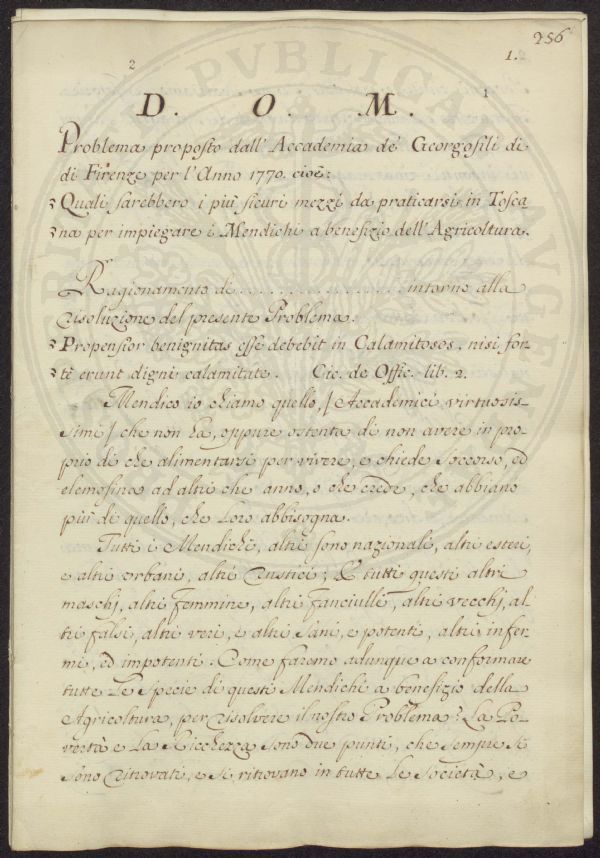 256
1.
2
1
D. O. M.
Problema proposto dall'Accademia de' Georgofili di
di Firenze per l'Anno 1770. cioè:
Quali sarebbero i più sicuri mezzi da praticarsi in Tosca
na per impiegare i Mendichi a benefizio dell'Agricoltura.
Ragionamento di . . . . . . . . . . . . . . . . . intorno alla
risoluzione del presente Problema.
Propensior benignitas esse debebit in Calamitosos, nisi for-
tè erunt digni calamitate. Cic. de Offic. lib. 2.
Mendico io chiamo quello, / Accademici virtuosis-
simi / che non ha, oppure ostenta di non avere in pro-
prio di che alimentarsi per vivere, e chiede soccorso, ed
elemosina ad altri che anno, o che crede, che abbiano
più di quello, che loro abbisogna.
Tutti i Mendichi, altri sono nazionali, altri esteri,
e altri urbani, altri rustici; E tutti questi altri
maschj, altri femmine, altri fanciulli, altri vecchj, al-
tri falsi, altri veri, e altri sani, e potenti, altri infer-
mi, ed impotenti. Come faremo adunque a conformare
tutte le specie di questi Mendichi a benefizio della
Agricoltura, per risolvere il nostro Problema? La Po-
vertà e la Ricchezza sono due punti, che sempre si
sono ritrovati, e si ritrovano in tutte le Società, e